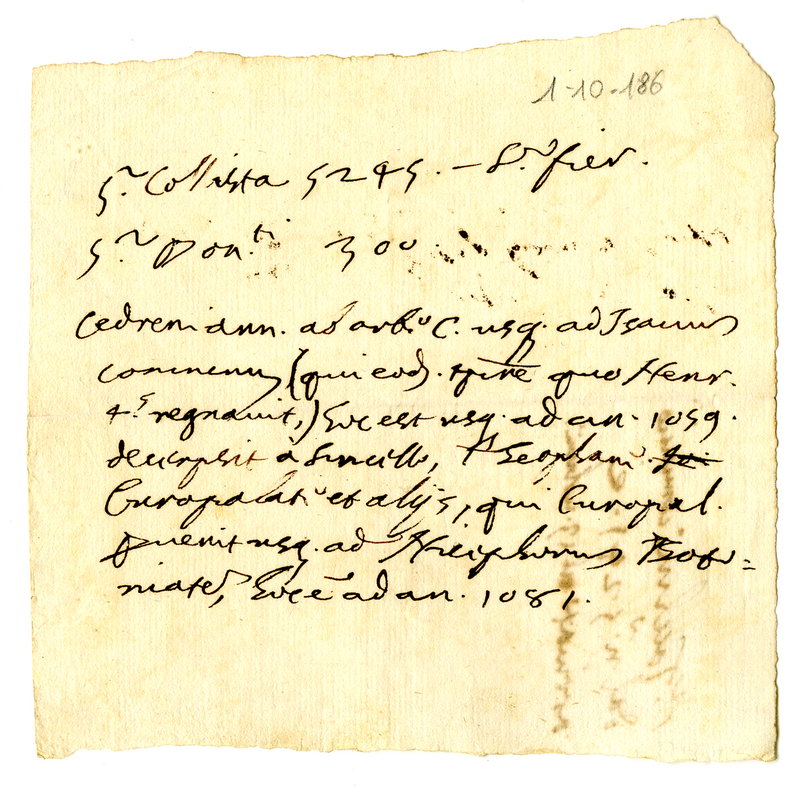 1-10-186
S.r Collista 5245. – S.r fier.
S.r Pon.ti 300
Cedreni ann. ab orb.o C. usq. ad Isaacium
comnenum (qui eod. tpre quo Henr.
4.s regnavit,) hoc est usq. ad an. 1059.
decerpsit à Sincello, Theophan.
Curopalat. et alijs, qui Curopal.
pervenit usq. ad Nicephorum Boto=
niatem, hoc e ad an. 1081.